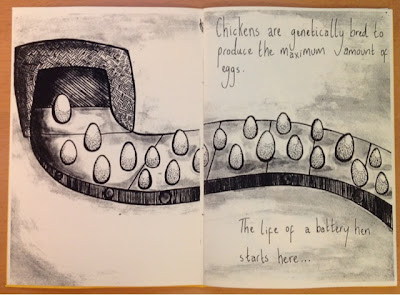 Chickens are genetically bred to
produce the maximum amount of
eggs.
The life of a battery hen
starts here...